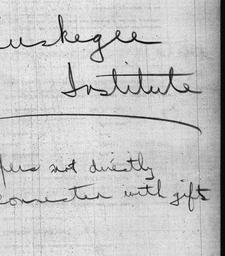 uskegee
Institute
not directly
connected with gifts